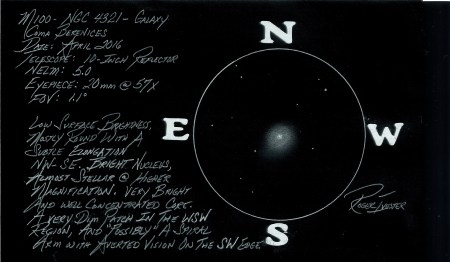 M100 - NGC 4321 - Galaxy
Coma Berenices
Date: April 2016
Telescope: 10-Inch Reflector
NELM: 5.0
Eyepiece: 20mm @ 57x
FOV: 1.1°
Low Surface Brightness,
Mostly Round With A
Subtle Elongation
NW-SE. Bright Nucleus,
Almost Stellar @ Higher
Magnification. Very Bright
And Well Concentrated Core.
A Very Dim Patch In The WSW
Region, And "Possibly" A Spiral
Arm With Averted Vision On The SW Edge
N
E
W
S
Roger Ivester